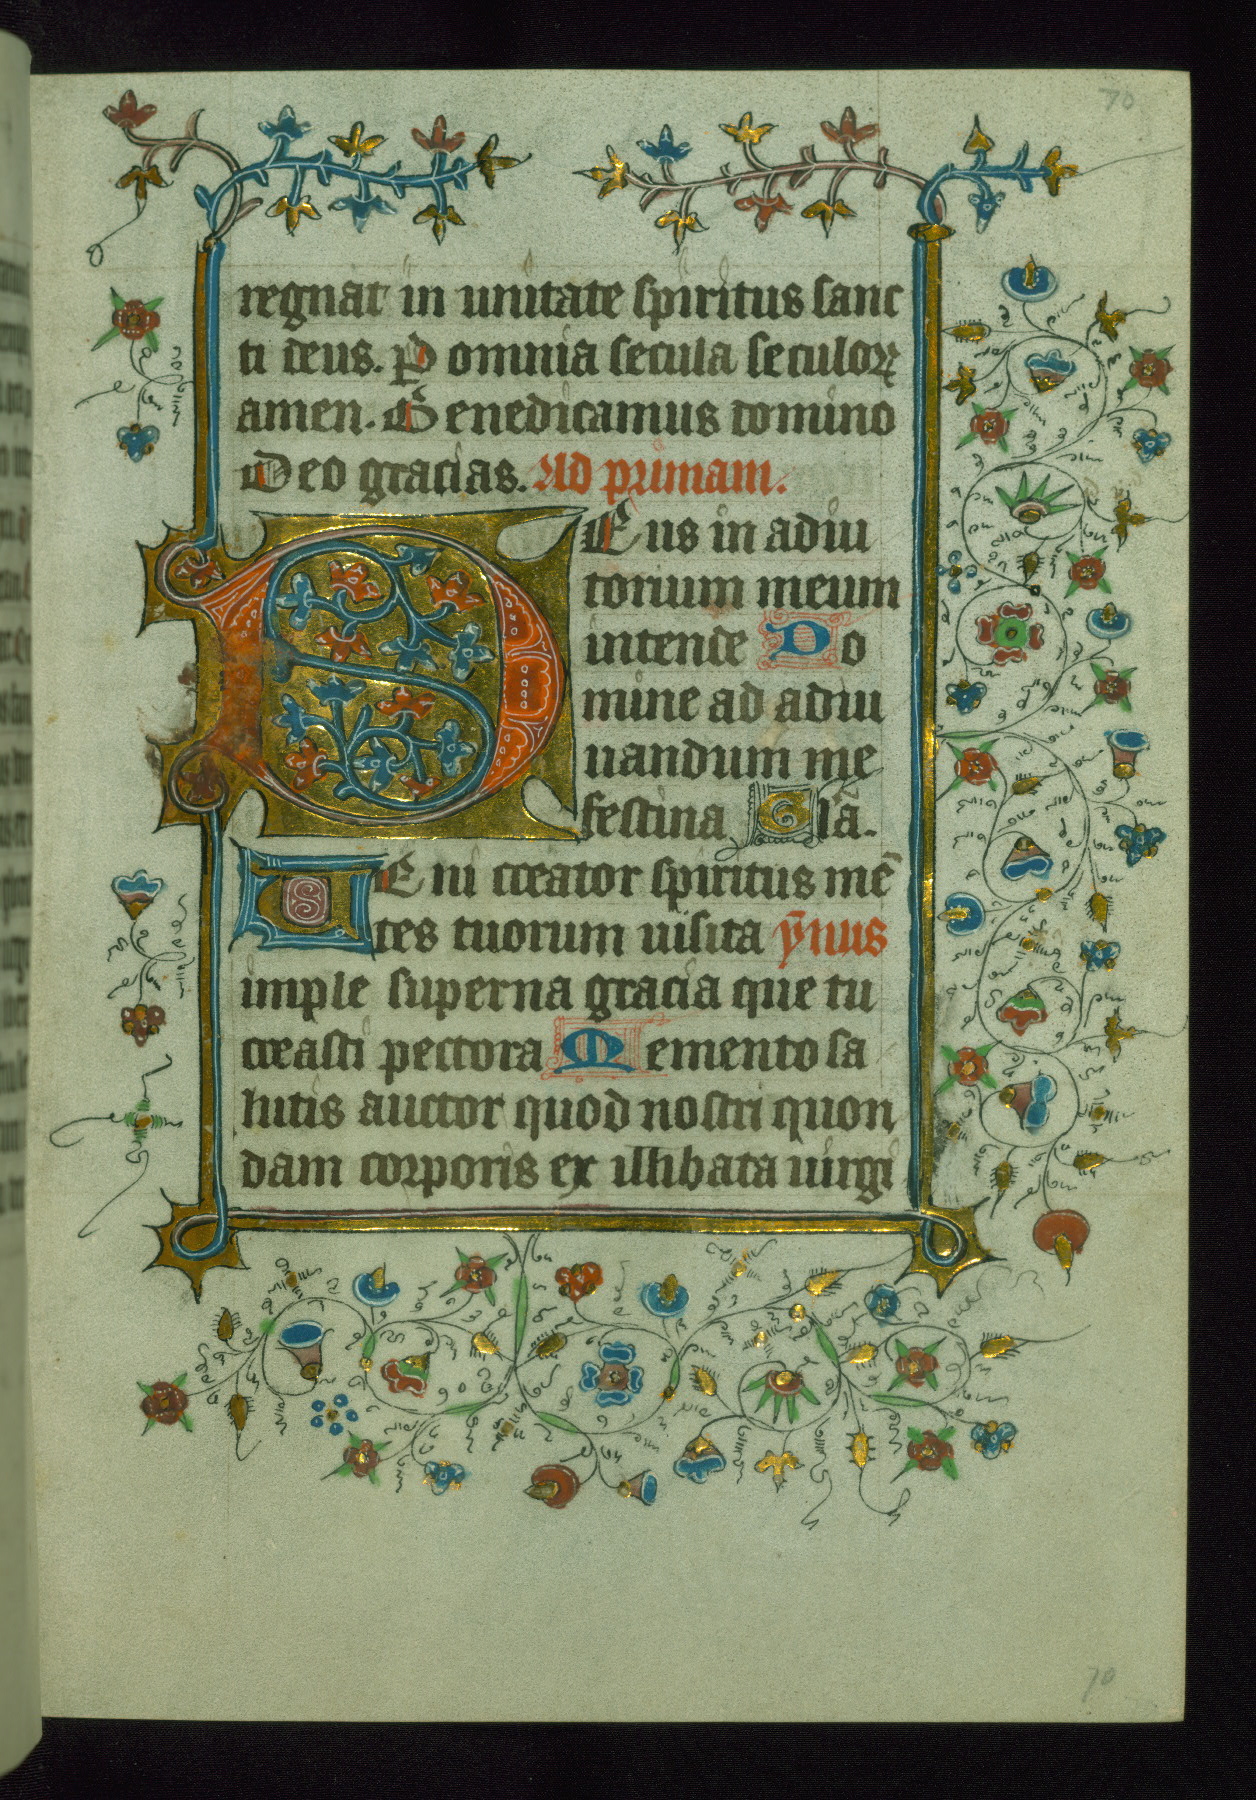 70
regnat in unitate spiritus sanc
ti deus. P omnia secula seculoꝝ
amen. Benedicamus domino
Deo gracias. Ad primam.
DEus in adiu
torium meum
intende Do
mine ad adiu
uandum me
festina Glā.
VEni creator spiritus mē
tes tuorum uisita ȳnus
imple superna gracia que tu
creasti pectora Memento sa
lutis auctor quod nostri quon
dam corporis ex illibata uirgi
70